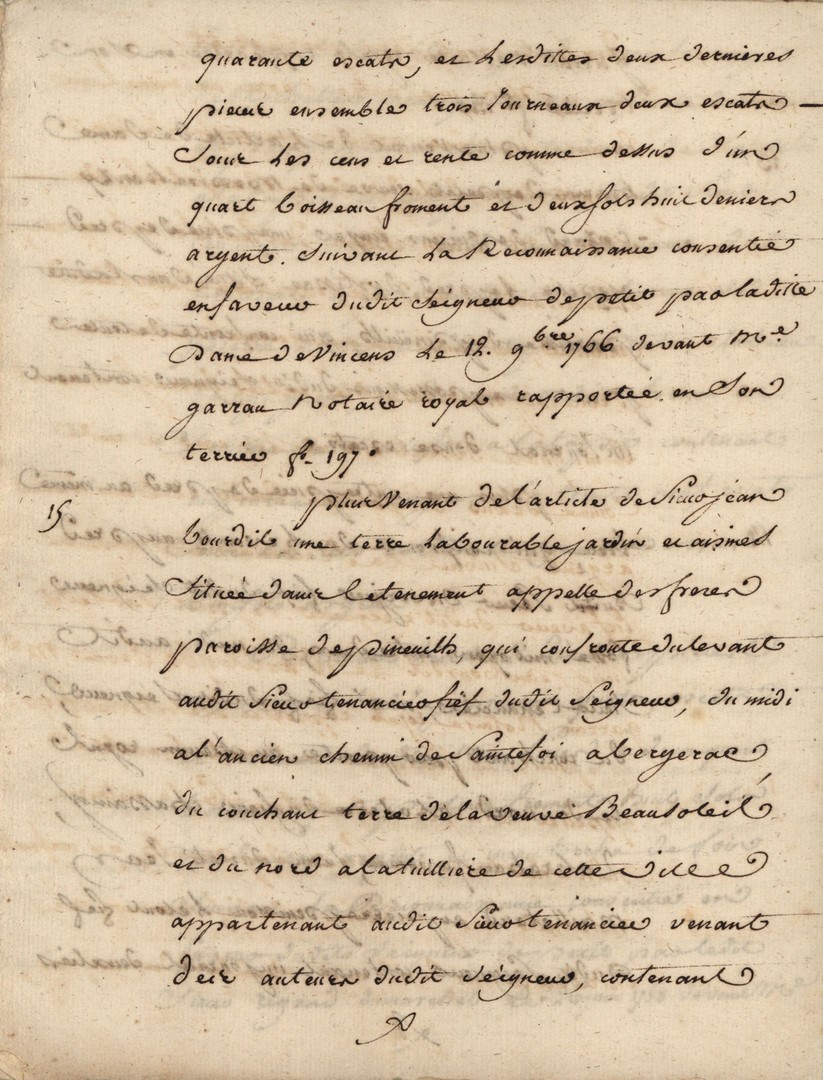 quarante escats, et Lesdittes deux dernieres
pieces ensemble trois Journeaux deux escats —
Sous Les cens et rente comme dessus d'un
quart boisseau froment et deux sols huit deniers
argent. Suivant La Reconnaissance consentie
en faveur dudit Seigneur depetit par laditte
Dame de Vincens Le 12. 9bre 1766 devant Me
garrau Notaire royal rapportée en Son
terrier fo 197.
15 plus Venant de l'article de Sieur jean
bourdil une terre Labourable jardin et aisines
Située dans le tenement appelle des freres
paroisse de pineuilh, qui confronte du levant
audit Sieur tenancier fief dudit Seigneur, du midi
a l'ancien chemin de Saintefoi a bergerac
du couchant terre de la veuve Beausoleil
et du nord a la tuilliere de cette ville
appartenant audit Sieur tenancier venant
des auteurs dudit Seigneur, contenant